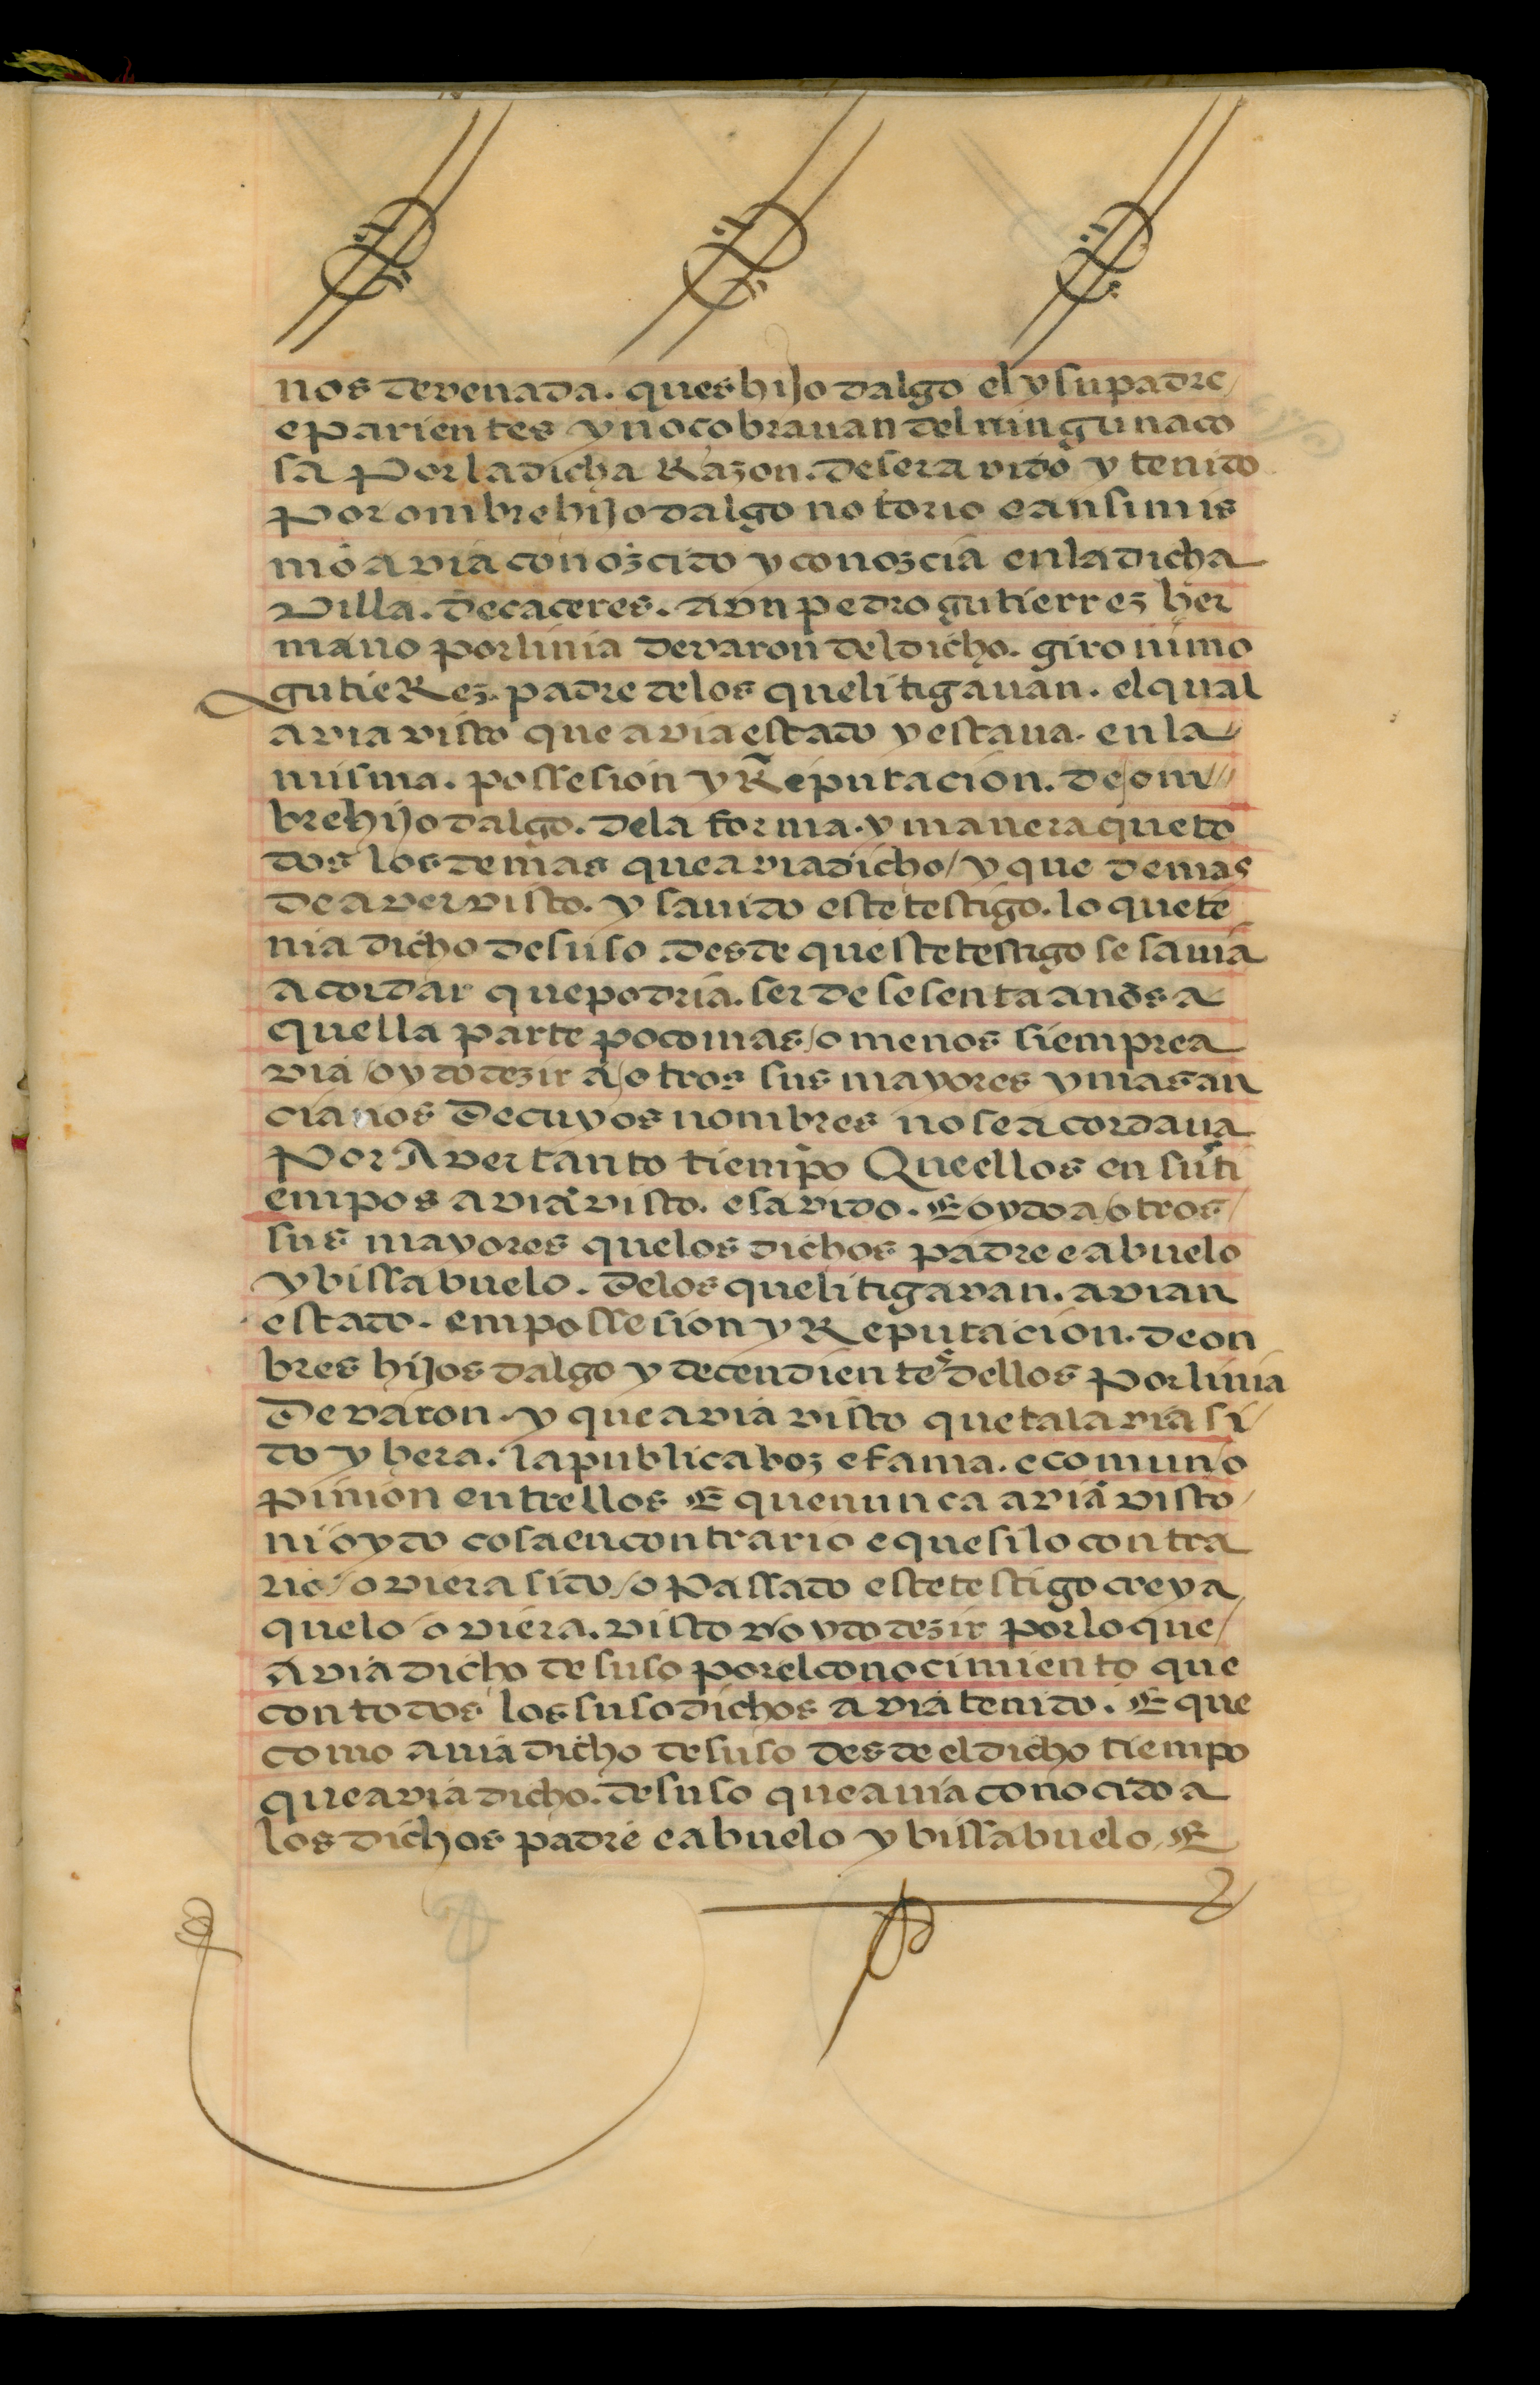 nos devenada. ques hijo dalgo el y su padre/
e Parientes y no cobravan del ninguna co
sa Por la dicha Razon. de ser avido y tenido
Por ombre hijo dalgo notorio e ansimis
mo avia conozcido y conozcia en la dicha
Villa. de caceres. a vn pedro gutierrez her
mano por linia de varon del dicho. gironimo
gutieRez. padre de los que litigauan. el qual
avia visto que avia estado y estaua. en la/
misma. possesion y Reputacion. de om//
bre hijo dalgo. de la forma. y manera que to
dos los demas que avia dicho/ y que demas
de aver visto. y sauido este testigo. lo que te
nia dicho de suso. desde queste testigo se sauia
acordar que podria. ser de sesenta años a
quella parte poco mas/o menos siempre a
via/oydo dezir a/otros sus mayores y mas an
cianos de cuyos nombres no se acordaua
Por Aver tanto tiempo Que ellos en su ti
empos avia visto. e savido. E oydo a/otros/
sus mayores que los dichos padre e abuelo
y bissabuelo. de los que litigavan. avian
estado. em possesion y Reputacion. de on
bres hijos dalgo y decendientes dellos Por linia
De varon. y que avia visto que tal avia si/
do y hera. la publica boz e fama. e comun/o
pinion entrellos E que nunca avia visto/
ni oydo cosa en contrario e que si lo contra
rio/oviera sido/o Passado este testigo creya
que lo/oviera. visto v/oydo dezir por lo que/
avia dicho de suso por el conocimiento que
con todos los susodichos avia tenido. E que
como auia dicho de suso desde el dicho tiempo
que avia dicho. de suso que auia conocido a
los dichos padre e abuelo y bissabuelo. E